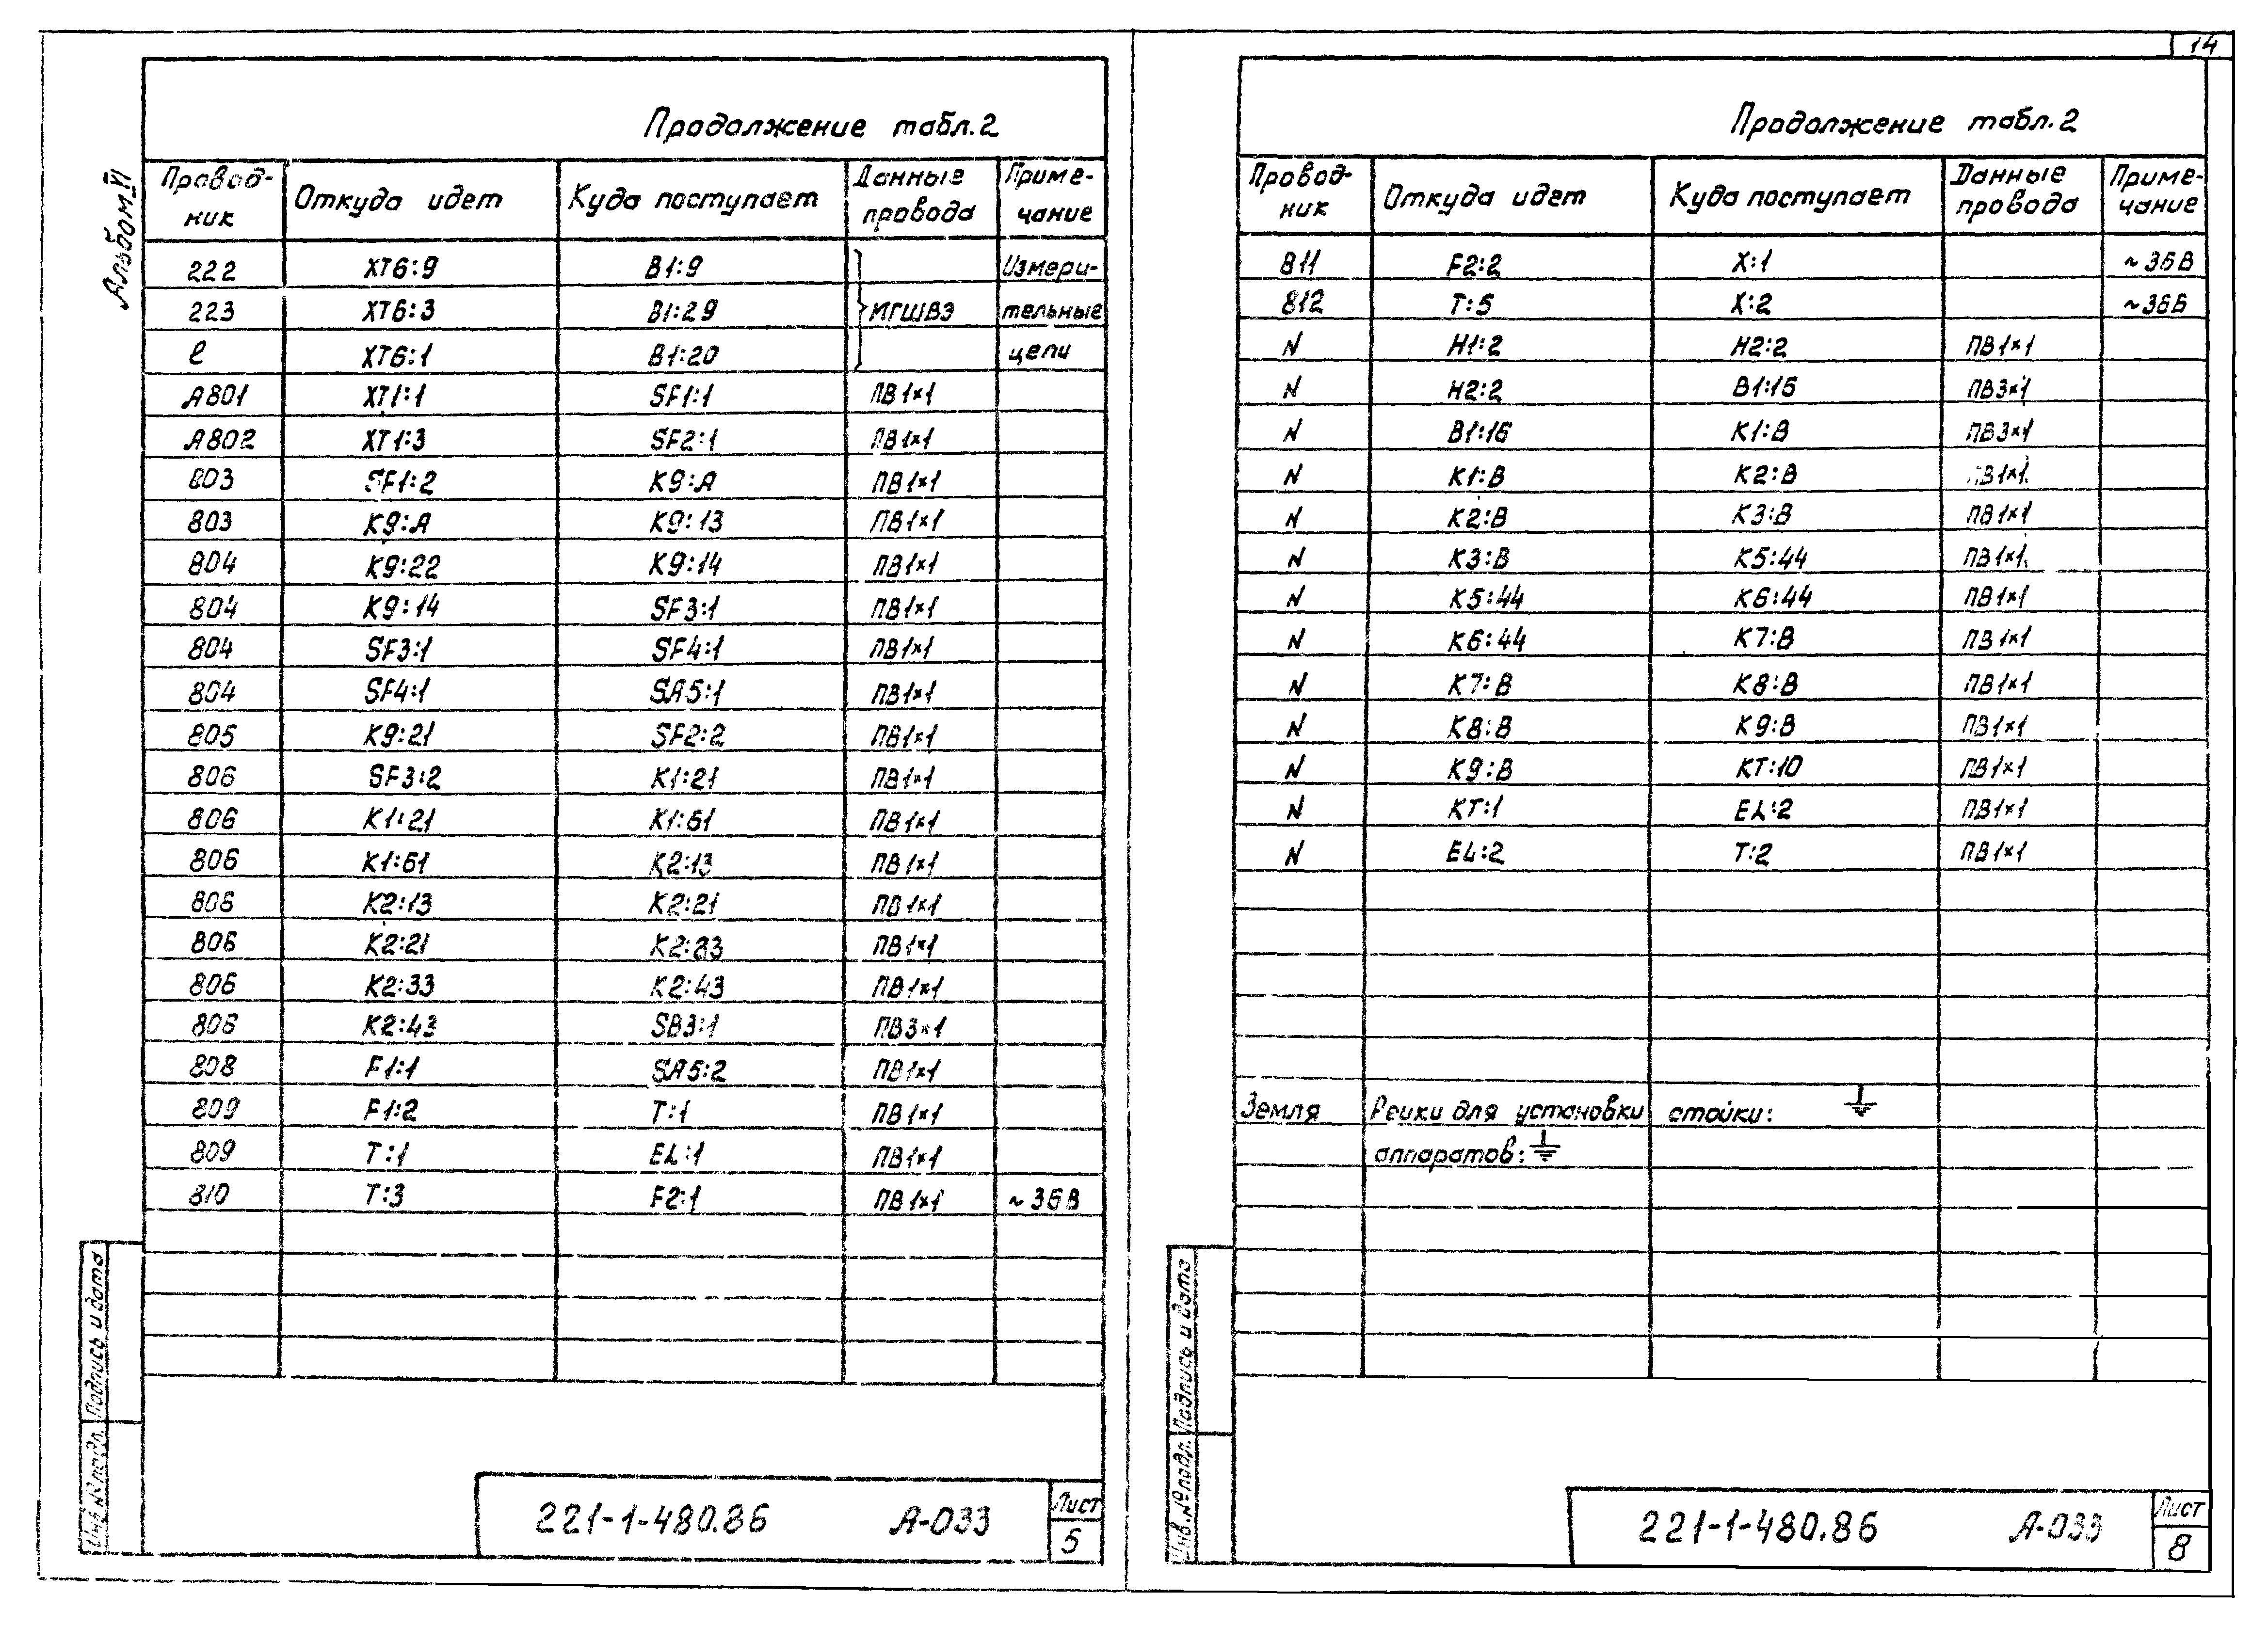 14
Альбом VI
Продолжение табл. 2
Провод-ник Откуда идет Куда поступает Данные провода Приме-чание
222 XT6:9 B1:9 Измери-
223 XT6:3 B1:29 МГШВЭ тельные
l XT6:1 B1:20 цепи
A801 XT1:1 SF1:1 ПВ1×1
A802 XT1:3 SF2:1 ПВ1×1
803 SF1:2 K9:A ПВ1×1
803 K9:A K9:13 ПВ1×1
804 K9:22 K9:14 ПВ1×1
804 K9:14 SF3:1 ПВ1×1
804 SF3:1 SF4:1 ПВ1×1
804 SF4:1 SA5:1 ПВ1×1
805 K9:21 SF2:2 ПВ1×1
806 SF3:2 K1:21 ПВ1×1
806 K1:21 K1:61 ПВ1×1
806 K1:61 K2:13 ПВ1×1
806 K2:13 K2:21 ПВ1×1
806 K2:21 K2:33 ПВ1×1
806 K2:33 K2:43 ПВ1×1
806 K2:43 SB3:1 ПВ3×1
808 F1:1 SA5:2 ПВ1×1
809 F1:2 T:1 ПВ1×1
809 T:1 EL:1 ПВ1×1
810 T:3 F2:1 ПВ1×1 ~36В
Подпись и дата
Инв. № подл.
221-1-480.86 А-033 Лист
5
Продолжение табл. 2
Провод-ник Откуда идет Куда поступает Данные провода Приме-чание
811 F2:2 X:1 ~36В
812 T:5 X:2 ~36В
N H1:2 H2:2 ПВ1×1
N H2:2 B1:16 ПВ3×1
N B1:16 K1:B ПВ3×1
N K1:B K2:B ПВ1×1
N K2:B K3:B ПВ1×1
N K3:B K5:44 ПВ1×1
N K5:44 K6:44 ПВ1×1
N K6:44 K7:B ПВ1×1
N K7:B K8:B ПВ1×1
N K8:B K9:B ПВ1×1
N K9:B KT:10 ПВ1×1
N KT:1 EL:2 ПВ1×1
N EL:2 T:2 ПВ1×1
Земля Рейки для установки стойки: ⏚
аппаратов: ⏚
Подпись и дата
Инв. № подл.
221-1-480.86 А-033 Лист
8